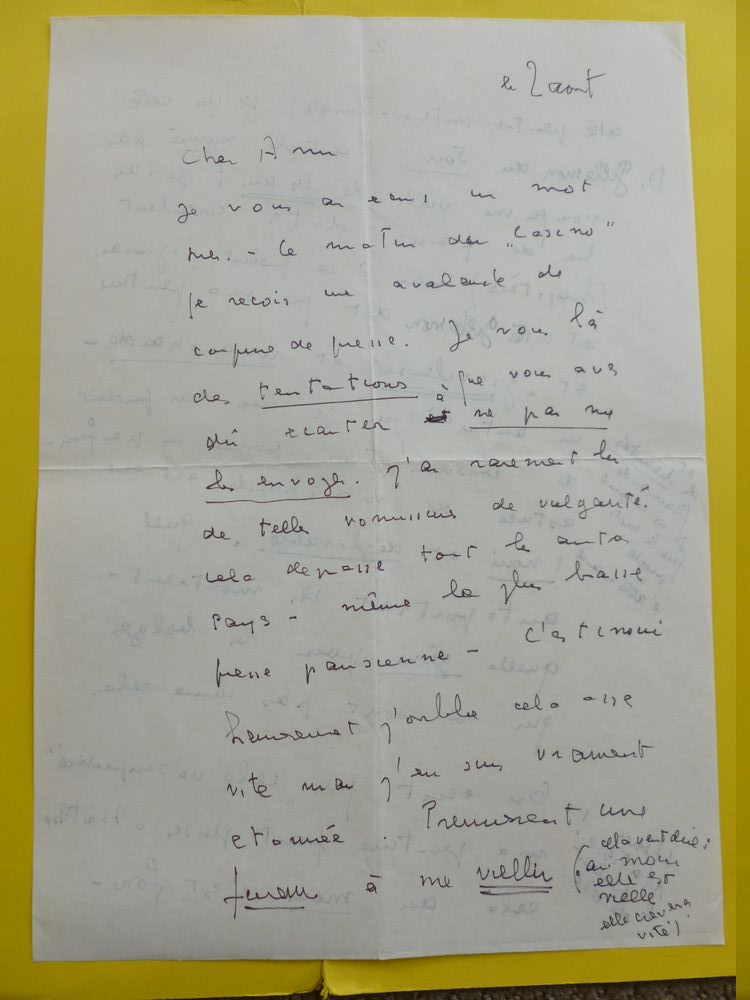 le 2 aout
Cher Ami
Je vous ai écris un mot
hier. - Ce matin du "Casino"
je recois une avalanche de
coupure de presse. Je vous là
des tentations à que vous avs
dû ecarter à ne pas me
les envoye. J'ai rarement lu
de telle vomissures de vulgarité.
cela depasse tout les autre
pays - même la plus basse
presse parisienne - C'est inoui
heureusement j'oublie cela asse
vite mais j'en suis vraiment
etonnée. Premierement une
fureur à me viellir
(cela veut dire:
au moin
elle est
vielle
elle crevera
vite)